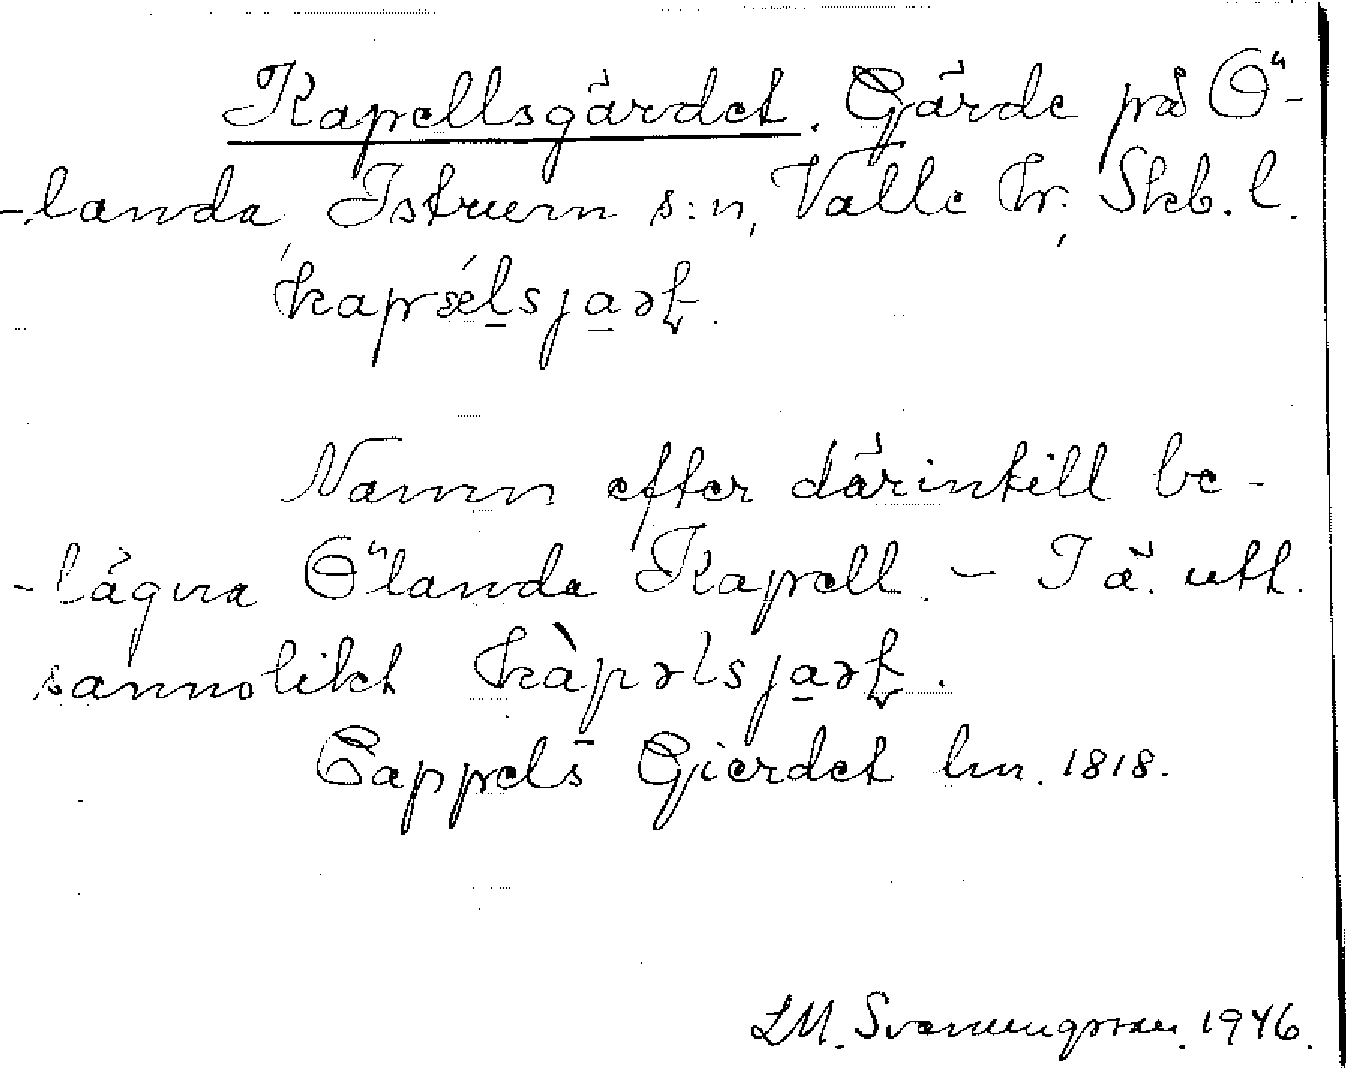 Kapellsgärdet. Gärde på Ö-
-landa, Istrum s:n, Valle hr, Skb. l.
kapǽlsjaət.
Namn efter därintill be-
-lägna Ölanda Kapell. – I ä. utt.
sannolikt kàpəlsjaət.
Cappels Gierdet lm. 1818.
LM. Svenungsson. 1946.